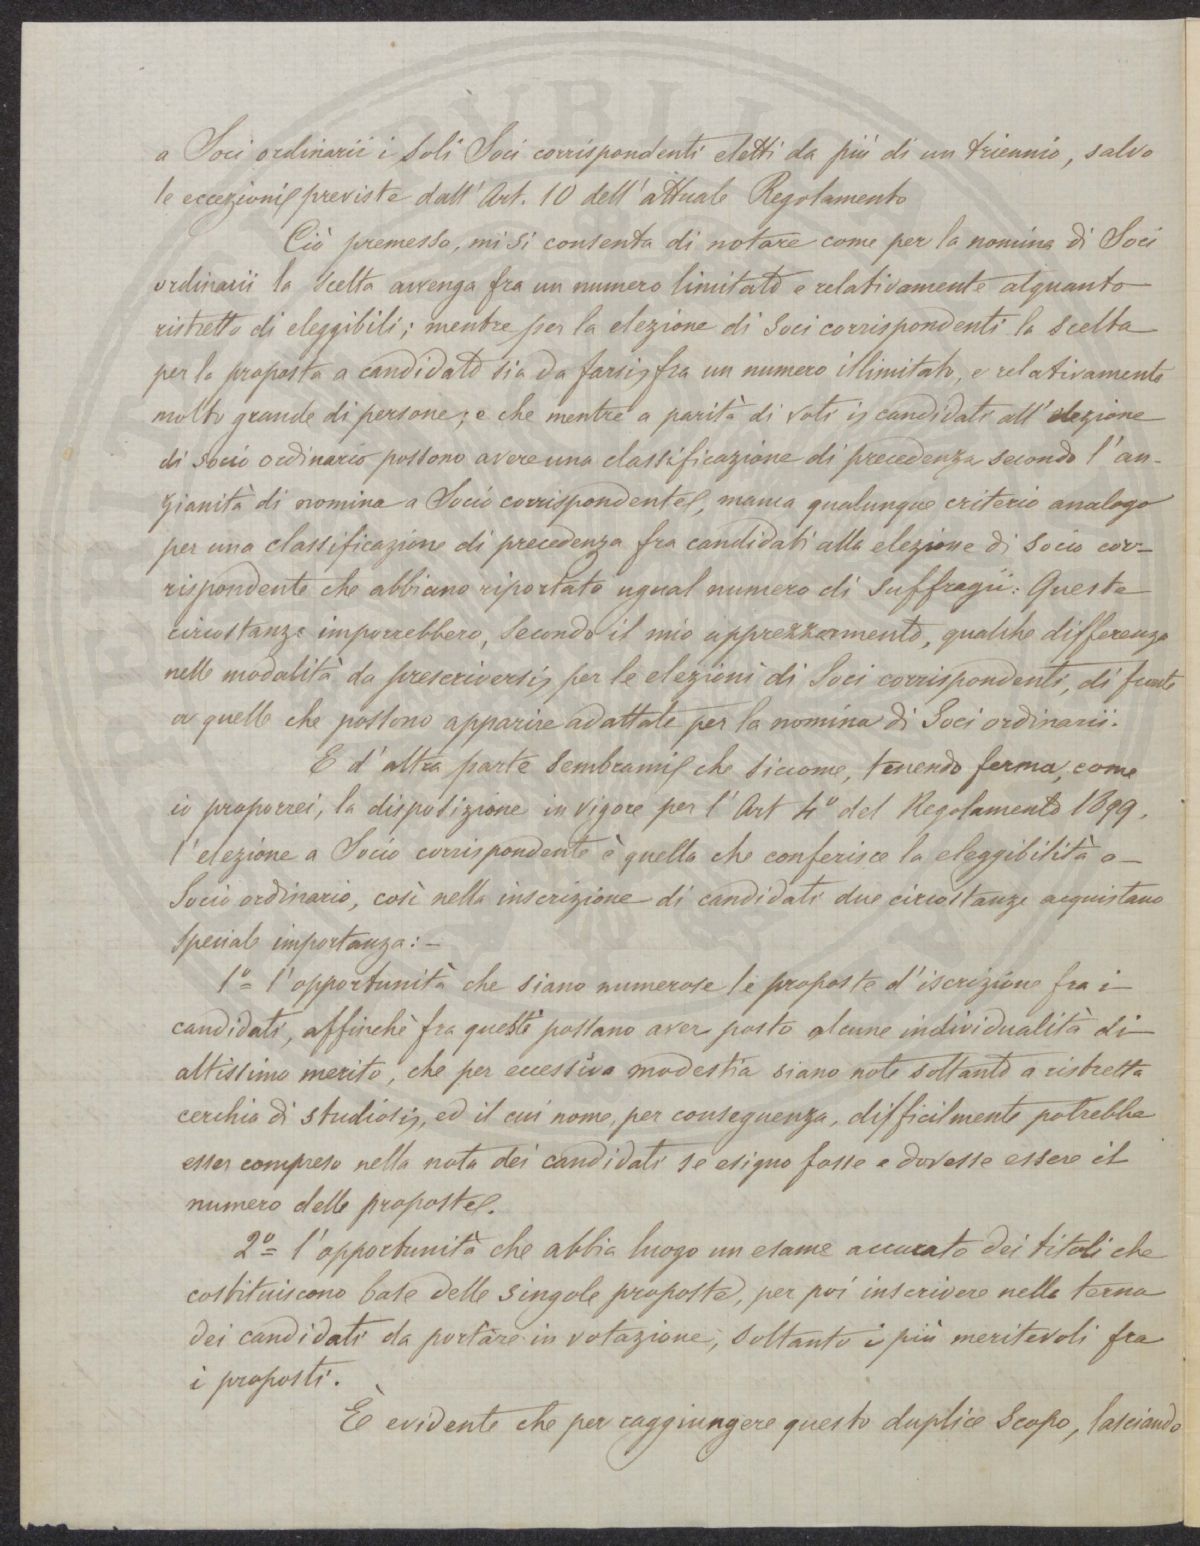 a Soci ordinarii i soli Soci corrispondenti eletti da più di un triennio, salvo
le eccezioni previste dall'Art. 10 dell'attuale Regolamento
Ciò premesso, mi si consenta di notare come per la nomina di Soci
ordinarii la scelta avvenga fra un numero limitato e relativamente alquanto
ristretto di eleggibili; mentre per la elezione di Soci corrispondenti la scelta
per la proposta a candidato sia da farsi fra un numero illimitato, e relativamente
molto grande di persone; e che mentre a parità di voti i candidati all'elezione
di Socio ordinario possono avere una classificazione di precedenza secondo l'an-
zianità di nomina a Socio corrispondente, manca qualunque criterio analogo
per una classificazione di precedenza fra candidati alla elezione di Socio cor-
rispondente che abbiano riportato ugual numero di suffragii: Queste
circostanze imporrebbero, secondo il mio apprezzamento, qualche differenza
nelle modalità da prescriversi per le elezioni di Soci corrispondenti, di fronte
a quelle che possono apparire adattate per la nomina di Soci ordinarii.
E d'altra parte sembrami che siccome, tenendo ferma, come
io proporrei, la disposizione in vigore per l'Art 4º del Regolamento 1899,
l'elezione a Socio corrispondente è quella che conferisce la eleggibilità a
Socio ordinario, così nella inscrizione di candidati due circostanze acquistano
speciale importanza: -
1º = l'opportunità che siano numerose le proposte d'iscrizione fra i
candidati, affinchè fra questi possano aver posto alcune individualità di
altissimo merito, che per eccessiva modestia siano note soltanto a ristretta
cerchia di studiosi, ed il cui nome, per conseguenza, difficilmente potrebbe
esser compreso nella nota dei candidati se esiguo fosse e dovesse essere il
numero delle proposte.
2º = l'opportunità che abbia luogo un esame accurato dei titoli che
costituiscono base delle singole proposte, per poi inscrivere nella terna
dei candidati da portare in votazione, soltanto i più meritevoli fra
i proposti.
È evidente che per raggiungere questo duplice scopo, lasciando